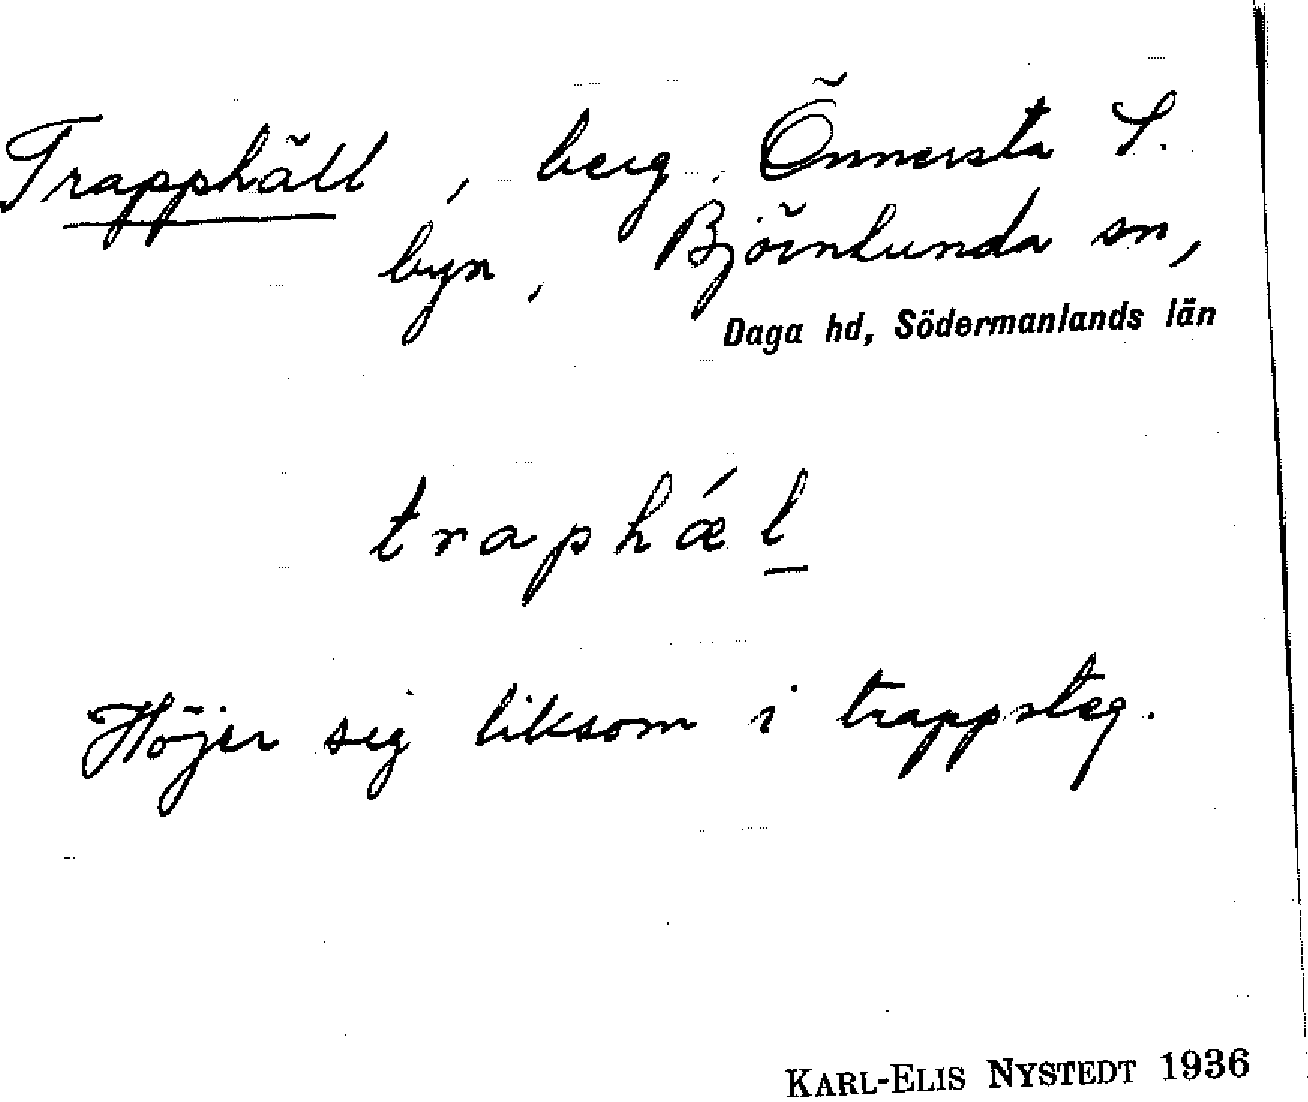 Trapphäll, berg. Önnersta S.
byn, Björnlunda sn,
Daga hd, Södermanlands län
traphǽl
Höjer sig liksom i trappsteg.
KARL-ELIS NYSTEDT 1936